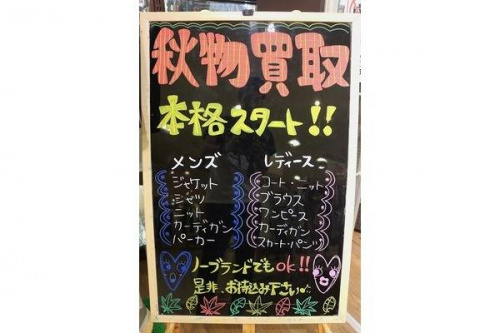 秋物買取
本格スタート!!
メンズ
ジャケット
シャツ
ニット
カーディガン
パーカー
レディース
コート・ニット
ブラウス
ワンピース
カーディガン
スカート・パンツ
ノーブランドでもok!!
是非、お持込み下さい♪